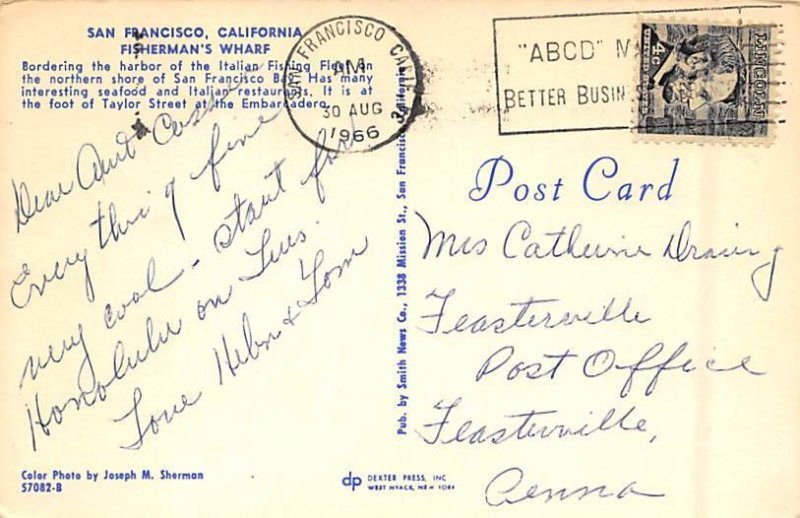 SAN FRANCISCO, CALIFORNIA
FISHERMAN'S WHARF
Bordering the harbor of the Italian Fishing Fleet on
the northern shore of San Francisco Bay. Has many
interesting seafood and Italian restaurants. It is at
the foot of Taylor Street at the Embarcadero.
Dear Aunt
Everything fine
very cool - start for
Honolulu on Tues.
Love Helen & Tom
Color Photo by Joseph M. Sherman
57082-B
Pub. by Smith News Co., 1338 Mission St., San Francisco, California
DEXTER PRESS, INC
WEST NYACK, NEW YORK
dp
SAN FRANCISCO CALIF
PM
30 AUG
1966
"ABCD"
BETTER BUSINESS
4c
LINCOLN
Post Card
Mrs Catherine
Feasterville
Post Office
Feasterville,
Penna